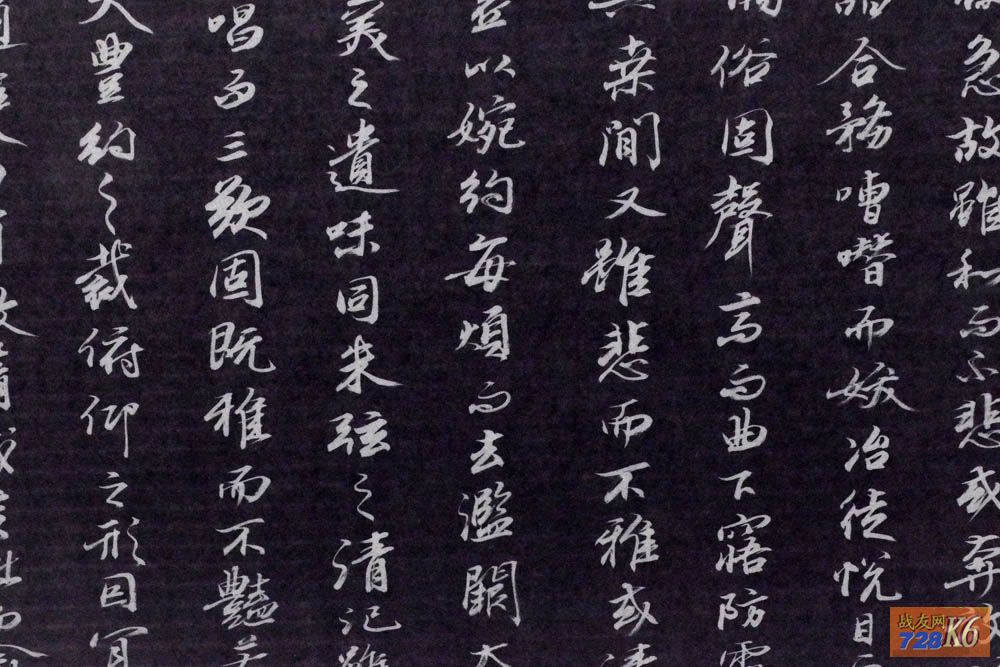 急故雖和而不悲或奔
合務嘈囋而妖冶徒悦目
俗固聲高而曲下寤防露
桑間又雖悲而不雅或清
以婉約每煩而去濫闕大
羙之遺味同朱弦之清氾雖
唱而三歎固既雅而不豔若
豐約之裁俯仰之形因宜
战友网
728 K6